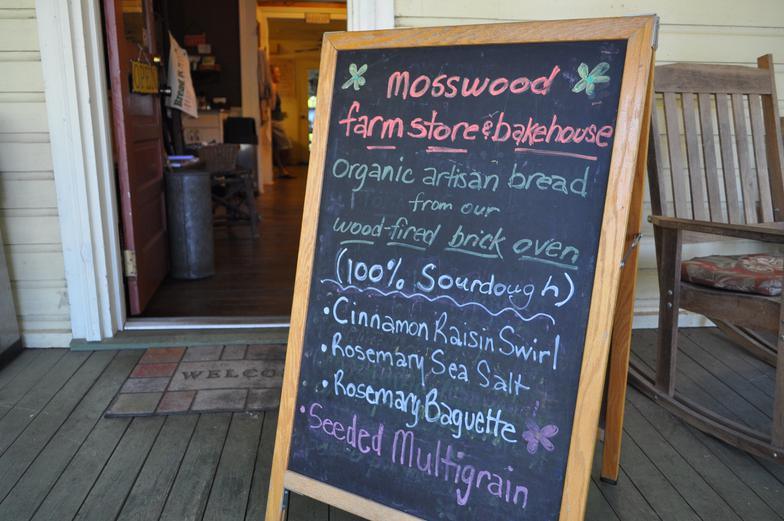 OPEN
Bread
WELCO
mosswood
farm store & bakehouse
Organic artisan bread
from our
wood-fired brick oven
(100% Sourdough)
• Cinnamon Raisin Swirl
• Rosemary Sea Salt
• Rosemary Baguette
• Seeded Multigrain